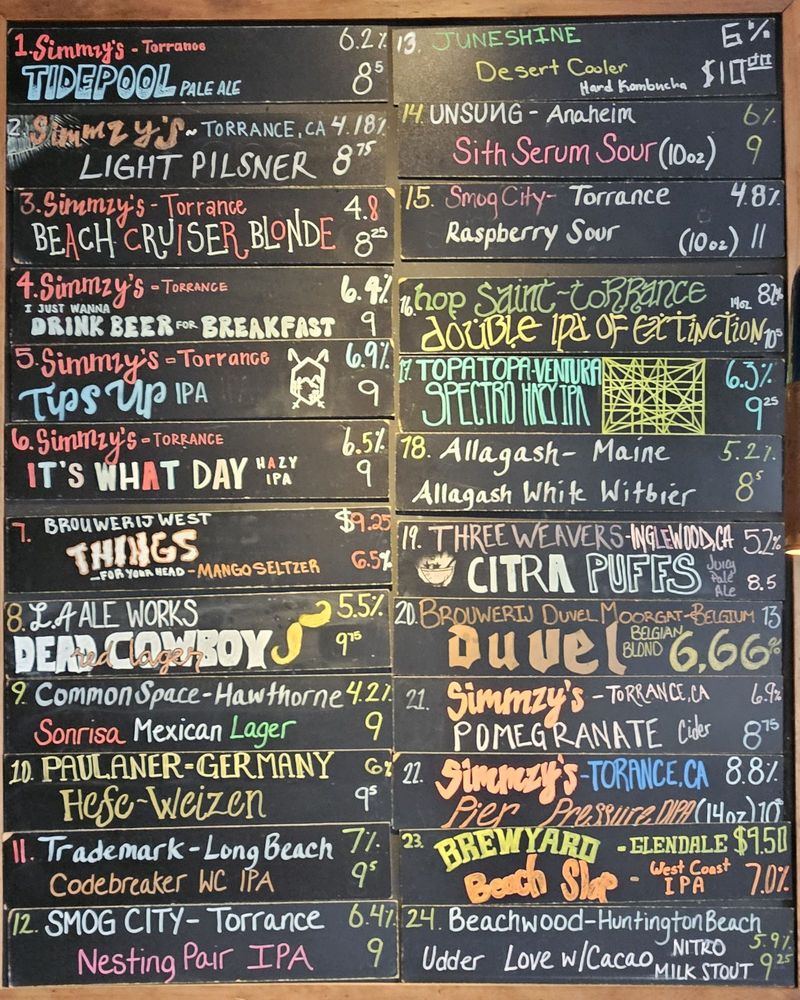 1. Simmzy's - Torrance 6.2%
TIDEPOOL PALE ALE 8⁵
2. Simmzy's ~ TORRANCE, CA 4.18%
LIGHT PILSNER 8⁷⁵
3. Simmzy's - Torrance 4.8
BEACH CRUISER BLONDE 8²⁵
4. Simmzy's - TORRANCE 6.4%
I JUST WANNA
DRINK BEER FOR BREAKFAST 9
5. Simmzy's - Torrance 6.9%
Tips Up IPA 9
6. Simmzy's - TORRANCE 6.5%
IT'S WHAT DAY HAZY IPA 9
7. BROUWERIJ WEST $9.25
THINGS
-FOR YOUR HEAD - MANGO SELTZER 6.5%
8. L.A ALE WORKS 5.5%
DEAD COWBOY red lager 9⁷⁵
9. Common Space - Hawthorne 4.2%
Sonrisa Mexican Lager 9
10. PAULANER - GERMANY 6%
Hefe-Weizen 9⁵
11. Trademark - Long Beach 7%
Codebreaker WC IPA 9⁵
12. SMOG CITY - Torrance 6.4%
Nesting Pair IPA 9
13. JUNESHINE 6%
Desert Cooler
Hard Kombucha $10⁰⁰
14. UNSUNG - Anaheim 6%
Sith Serum Sour (10oz) 9
15. Smog City - Torrance 4.8%
Raspberry Sour (10oz) 11
16. hop Saint - torrance 14oz 8%
double ipa of extinction 10⁵
17. TOPA TOPA - VENTURA 6.3%
SPECTRO HAZY IPA 9²⁵
18. Allagash - Maine 5.2%
Allagash White Witbier 8⁵
19. THREE WEAVERS - INGLEWOOD, CA 5.2%
CITRA PUFFS Juicy Pale Ale 8.5
20. BROUWERIJ DUVEL MOORGAT - BELGIUM 13
duvel BELGIAN BLOND 6,66%
21. Simmzy's - TORRANCE, CA 6.9%
POMEGRANATE Cider 8⁷⁵
22. Simmzy's - TORANCE, CA 8.8%
Pier Pressure DIPA (14oz) 10⁵
23. BREWYARD - GLENDALE $9.50
Beach Slap - West Coast IPA 7.0%
24. Beachwood - Huntington Beach 5.9%
Udder Love w/ Cacao NITRO MILK STOUT 9²⁵